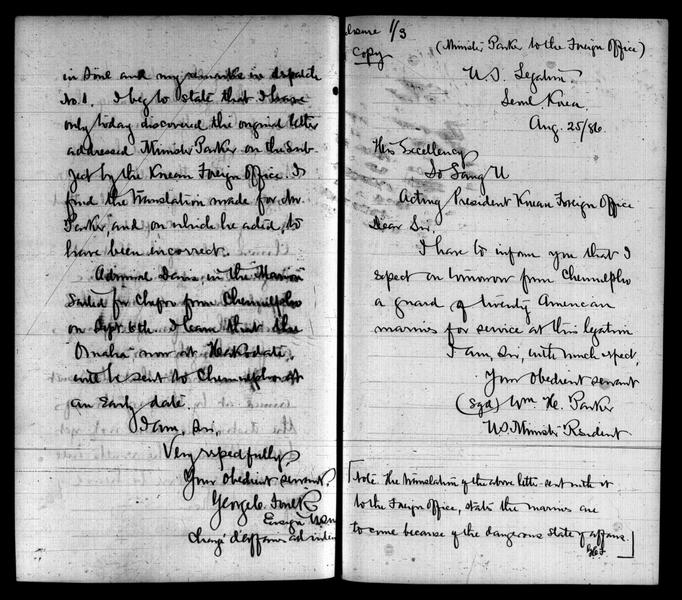 in Done and my remarks in dispatch
No. 1. I beg to state that I have
only today discovered the original letter
addressed Minister Parker on the Sub-
ject by the Korean Foreign Office. I
find the translation made for Mr.
Parker, and on which he acted, to
have been incorrect.
Admiral Davis, in the "Marion"
Sailed for Chefoo from Chemulpho
on Sept. 6th. I learn that the
"Omaha" now at Hakodate,
will be sent to Chemulpho at
an early date.
I am, Sir,
Very respectfully,
Your obedient servant,
George C. Foulk
Ensign USN
Chargé d'affaires ad interim
closure 1/3
Copy
(Minister Parker to the Foreign Office)
U.S. Legation
Seoul Korea.
Aug. 25/86
His Excellency
So Sang U
Acting President Korean Foreign Office
Dear Sir,
I have to inform you that I
expect on tomorrow from Chemulpho
a guard of twenty American
marines for service at this legation
I am, Sir, with much respect,
Your obedient servant
(Sgd) Wm. H. Parker
U.S. Minister Resident
[Note. The translation of the above letter sent with it
to the Foreign Office, states the marines are
to come because of the dangerous state of affairs.
GCF]